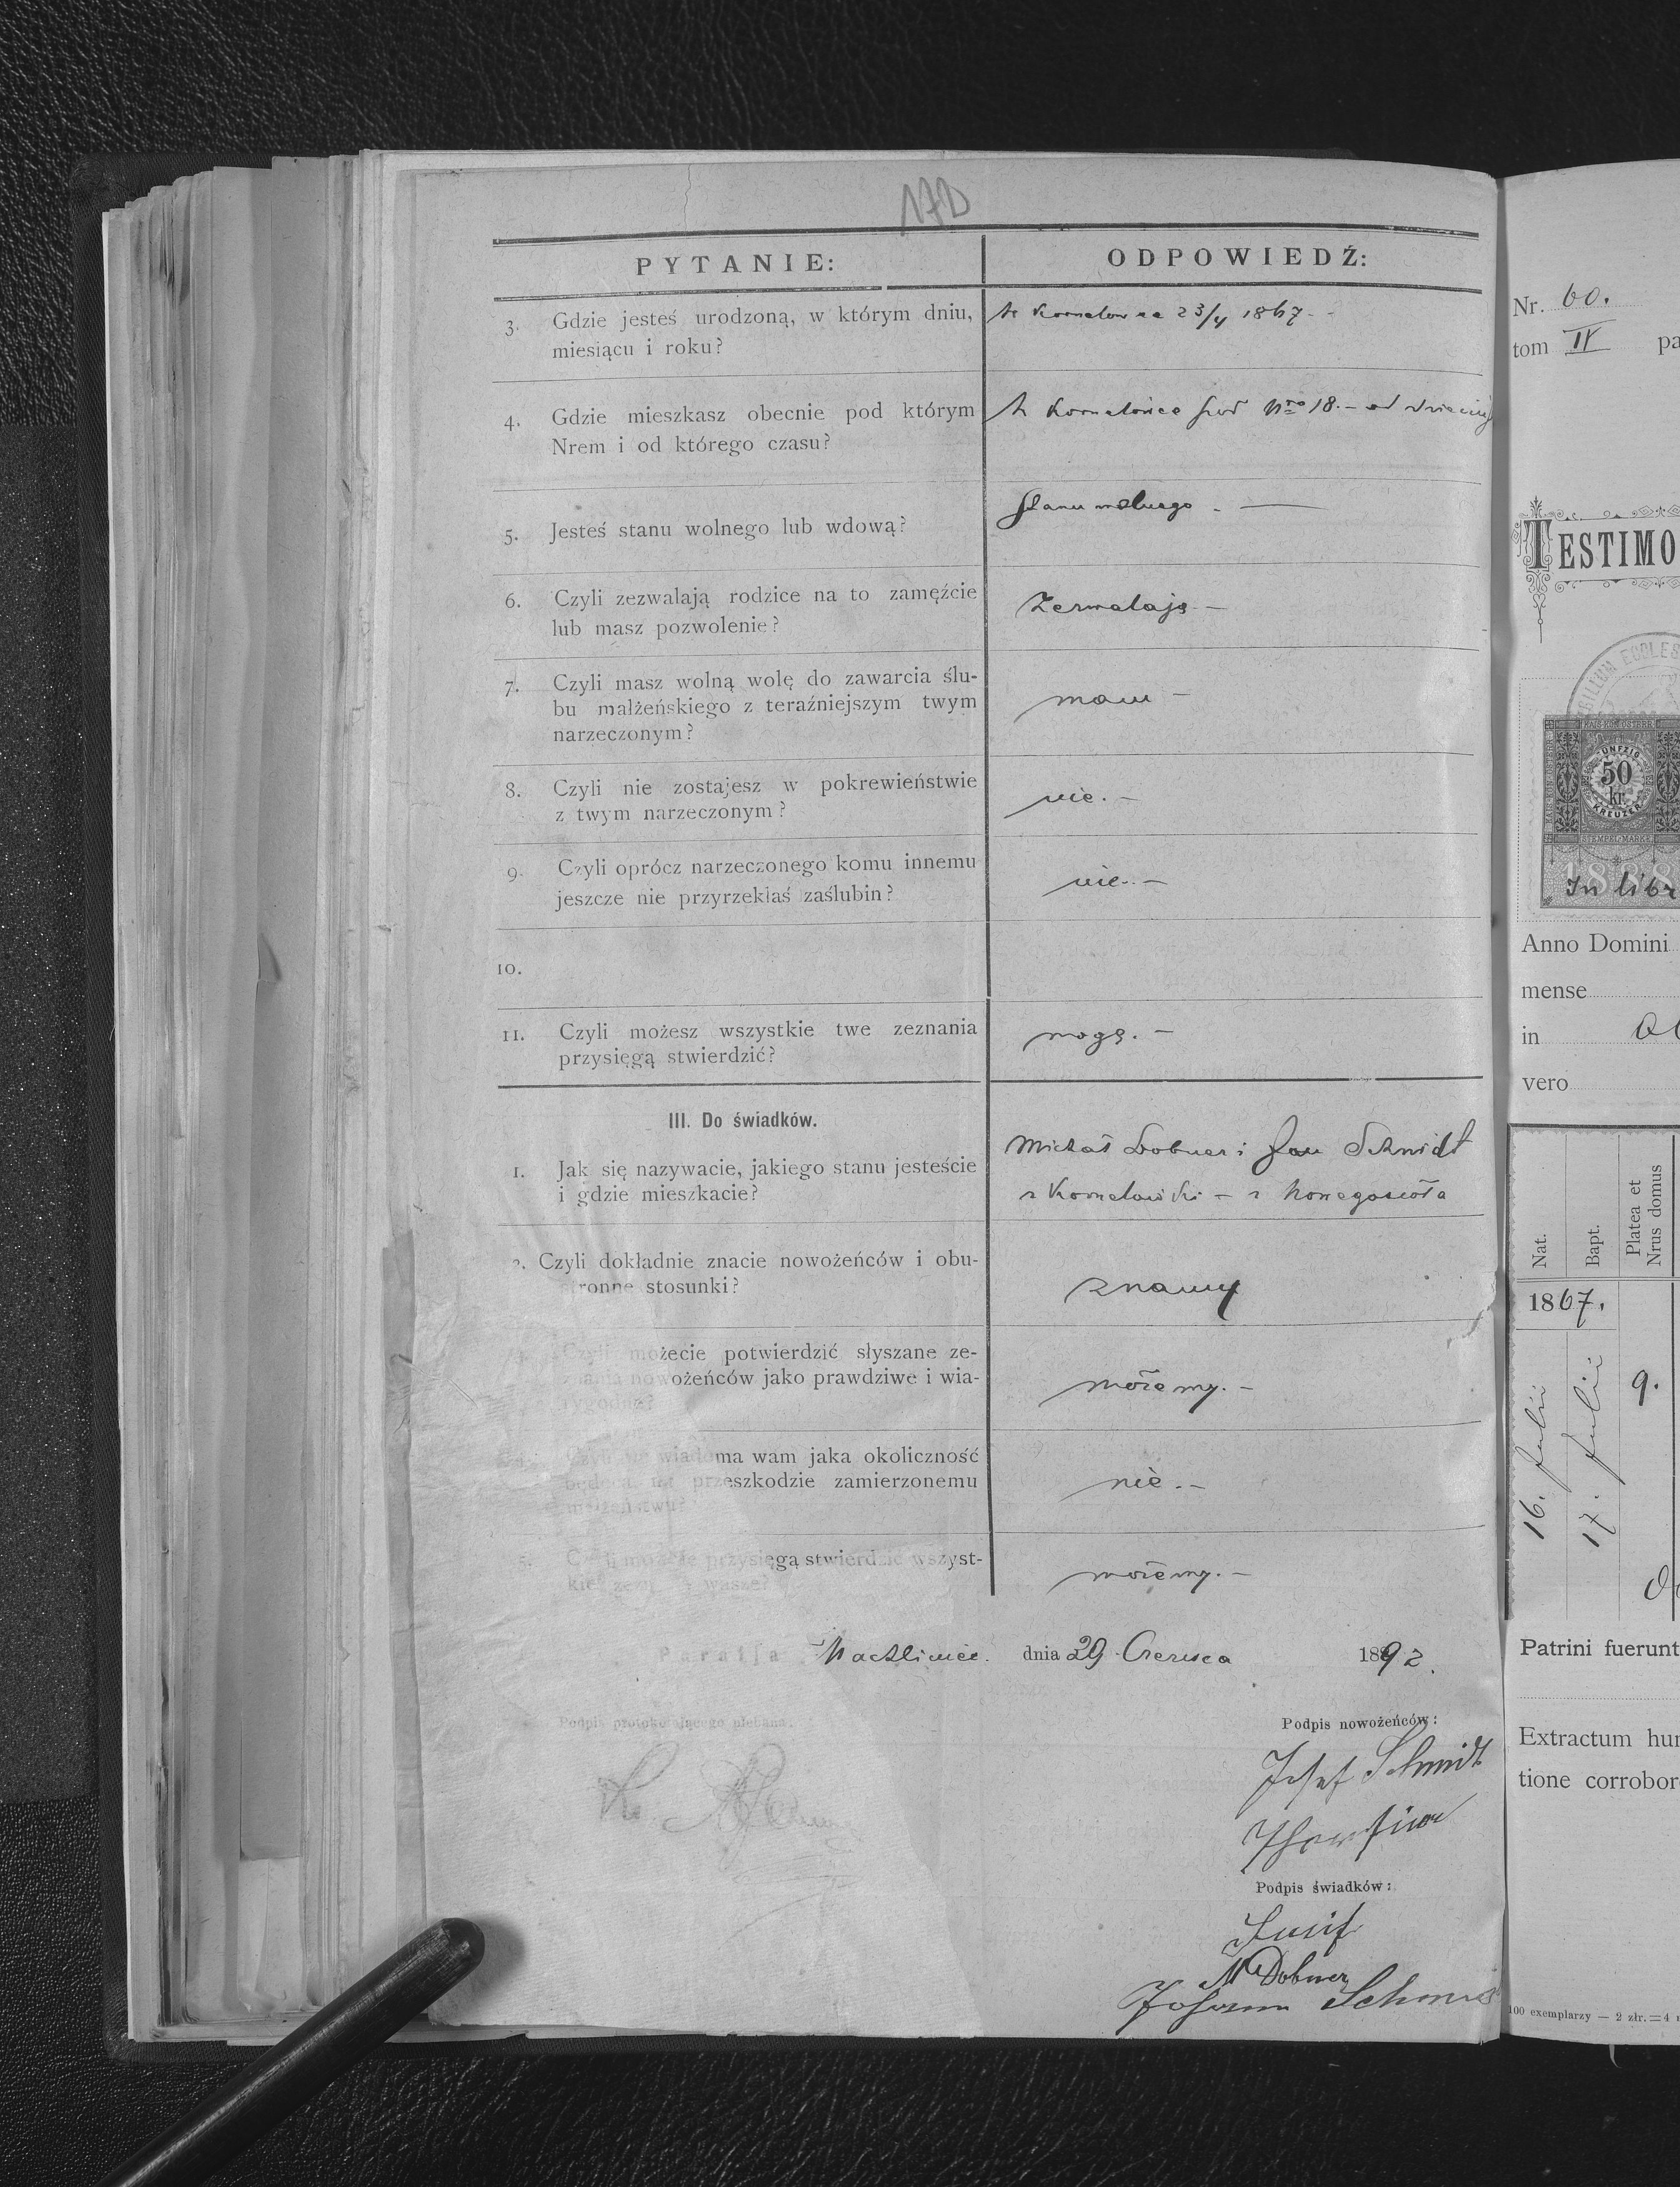 170
PYTANIE:
ODPOWIEDŹ:
3. Gdzie jesteś urodzoną, w którym dniu,
miesiącu i roku?
23/4 1867.
4. Gdzie mieszkasz obecnie pod którym
Nrem i od którego czasu?
Nro 18. – od
5. Jesteś stanu wolnego lub wdową?
Stanu wolnego. —
6. Czyli zezwalają rodzice na to zamęźcie
lub masz pozwolenie?
Zezwalają –
7. Czyli masz wolną wolę do zawarcia ślu-
bu małżeńskiego z teraźniejszym twym
narzeczonym?
mam –
8. Czyli nie zostajesz w pokrewieństwie
z twym narzeczonym?
nie. –
9. Czyli oprócz narzeczonego komu innemu
jeszcze nie przyrzekłaś zaślubin?
nie. –
10.
11. Czyli możesz wszystkie twe zeznania
przysięgą stwierdzić?
mogę. –
III. Do świadków.
1. Jak się nazywacie, jakiego stanu jesteście
i gdzie mieszkacie?
Michał Dobner i Jan Schmidt
2. Czyli dokładnie znacie nowożeńców i obu-
stronne stosunki?
znamy
Czyli możecie potwierdzić słyszane ze-
znania nowożeńców jako prawdziwe i wia-
rygodne?
możemy. –
wiadoma wam jaka okoliczność
przeszkodzie zamierzonemu
małżeństwu?
nie. –
5. przysięgą stwierdzić wszyst-
kie wasze?
możemy. –
Parafja Machliniec. dnia 29 Czerwca 1892.
Podpis protokołującego plebana.
Podpis nowożeńców:
Josef Schmidt
Podpis świadków:
M Dobner
Johann Schmid
Nr. 60.
tom IV pa
TESTIMO
SIGILLUM ECCLES
KAIS. KÖN. ÖSTERR.
FÜNFZIG
50
kr.
KREUZER
STEMPEL-MARKE
1888
In libr
Anno Domini
mense
in
vero
Nat.
Bapt.
Platea et
Nrus domus
1867.
16. Julii
17. Julii
9.
Patrini fuerunt
Extractum hu
tione corrobor
100 exemplarzy — 2 złr. = 4